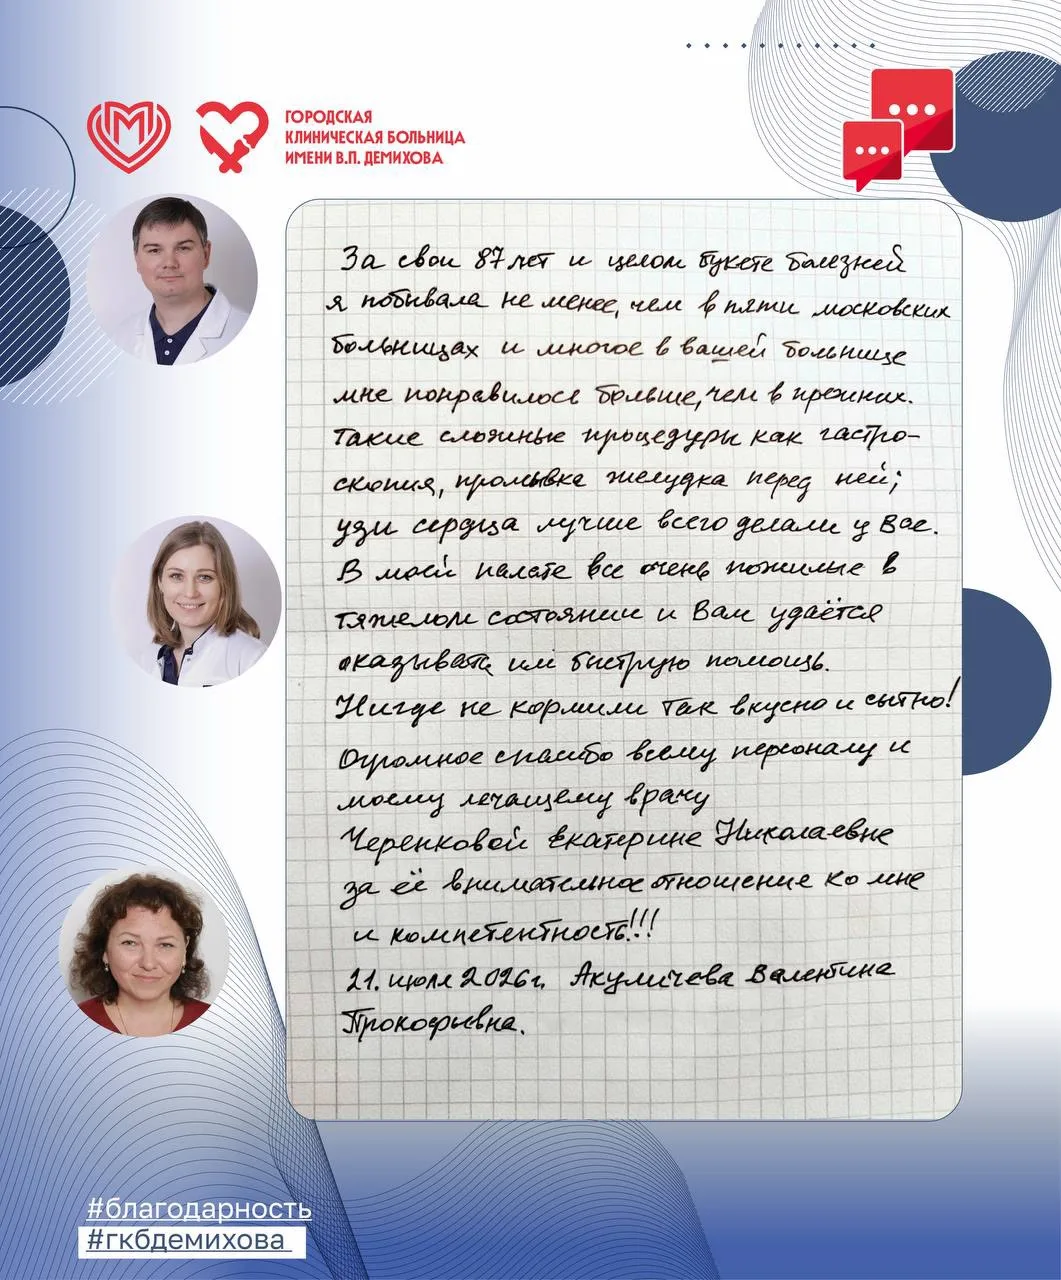 ГОРОДСКАЯ
КЛИНИЧЕСКАЯ БОЛЬНИЦА
ИМЕНИ В.П. ДЕМИХОВА
За свои 87 лет и целом букете болезней
я побывала не менее, чем в пяти московских
больницах и многое в вашей больнице
мне понравилось больше, чем в прежних.
Такие сложные процедуры как гастро-
скопия, промывка желудка перед ней;
узи сердца лучше всего делали у Вас.
В моей палате все очень пожилые в
тяжелом состоянии и Вам удаётся
оказывать им быструю помощь.
Нигде не кормили так вкусно и сытно!
Огромное спасибо всему персоналу и
моему лечащему врачу
Черенковой Екатерине Николаевне
за её внимательное отношение ко мне
и компетентность!!!
21. июля 2026г. Акуличева Валентина
Прокофьевна.
#благодарность
#гкбдемихова